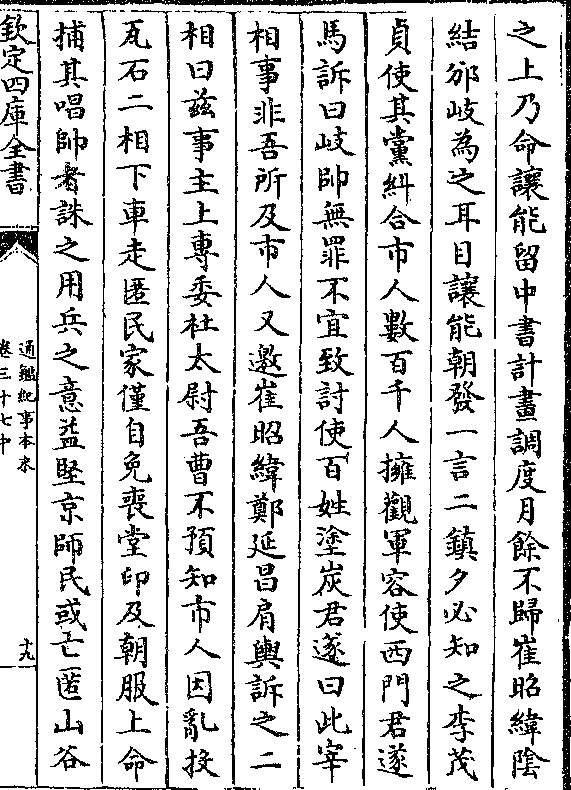 之上乃命讓能留中書計畫調度月餘不歸崔昭緯陰
結邠岐為之耳目讓能朝發一言二鎮夕必知之李茂
貞使其黨糾合市人數百千人擁觀軍容使西門君遂
馬訴曰岐帥無罪不宜致討使百姓塗炭君遂曰此宰
相事非吾所及市人又邀崔昭緯鄭延昌肩輿訴之二
相曰兹事主上專委杜太尉吾曹不預知市人因亂投
瓦石二相下車走匿民家僅自免喪堂印及朝服上命
捕其唱帥者誅之用兵之意益堅京師民或亡匿山谷
欽定四庫全書
通鑑紀事本末
卷三十七中
十九